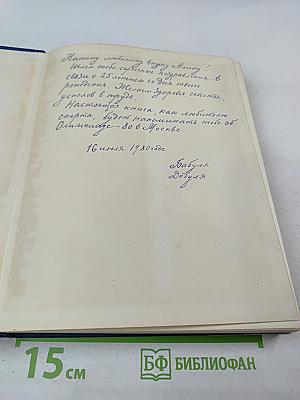 Нашему любимому внуку Алику!
Шлем тебе сердечные поздравления в
связи с 25-летием со дня твоего
рождения. Желаем здоровья, счастья,
успехов в труде.
Настоящая книга, как любителю
спорта, будет напоминать тебе об
Олимпиаде-80 в Москве.
16 июля 1980 года
Бабуля
Дедуля
15 см
БФ БИБЛИОФАН